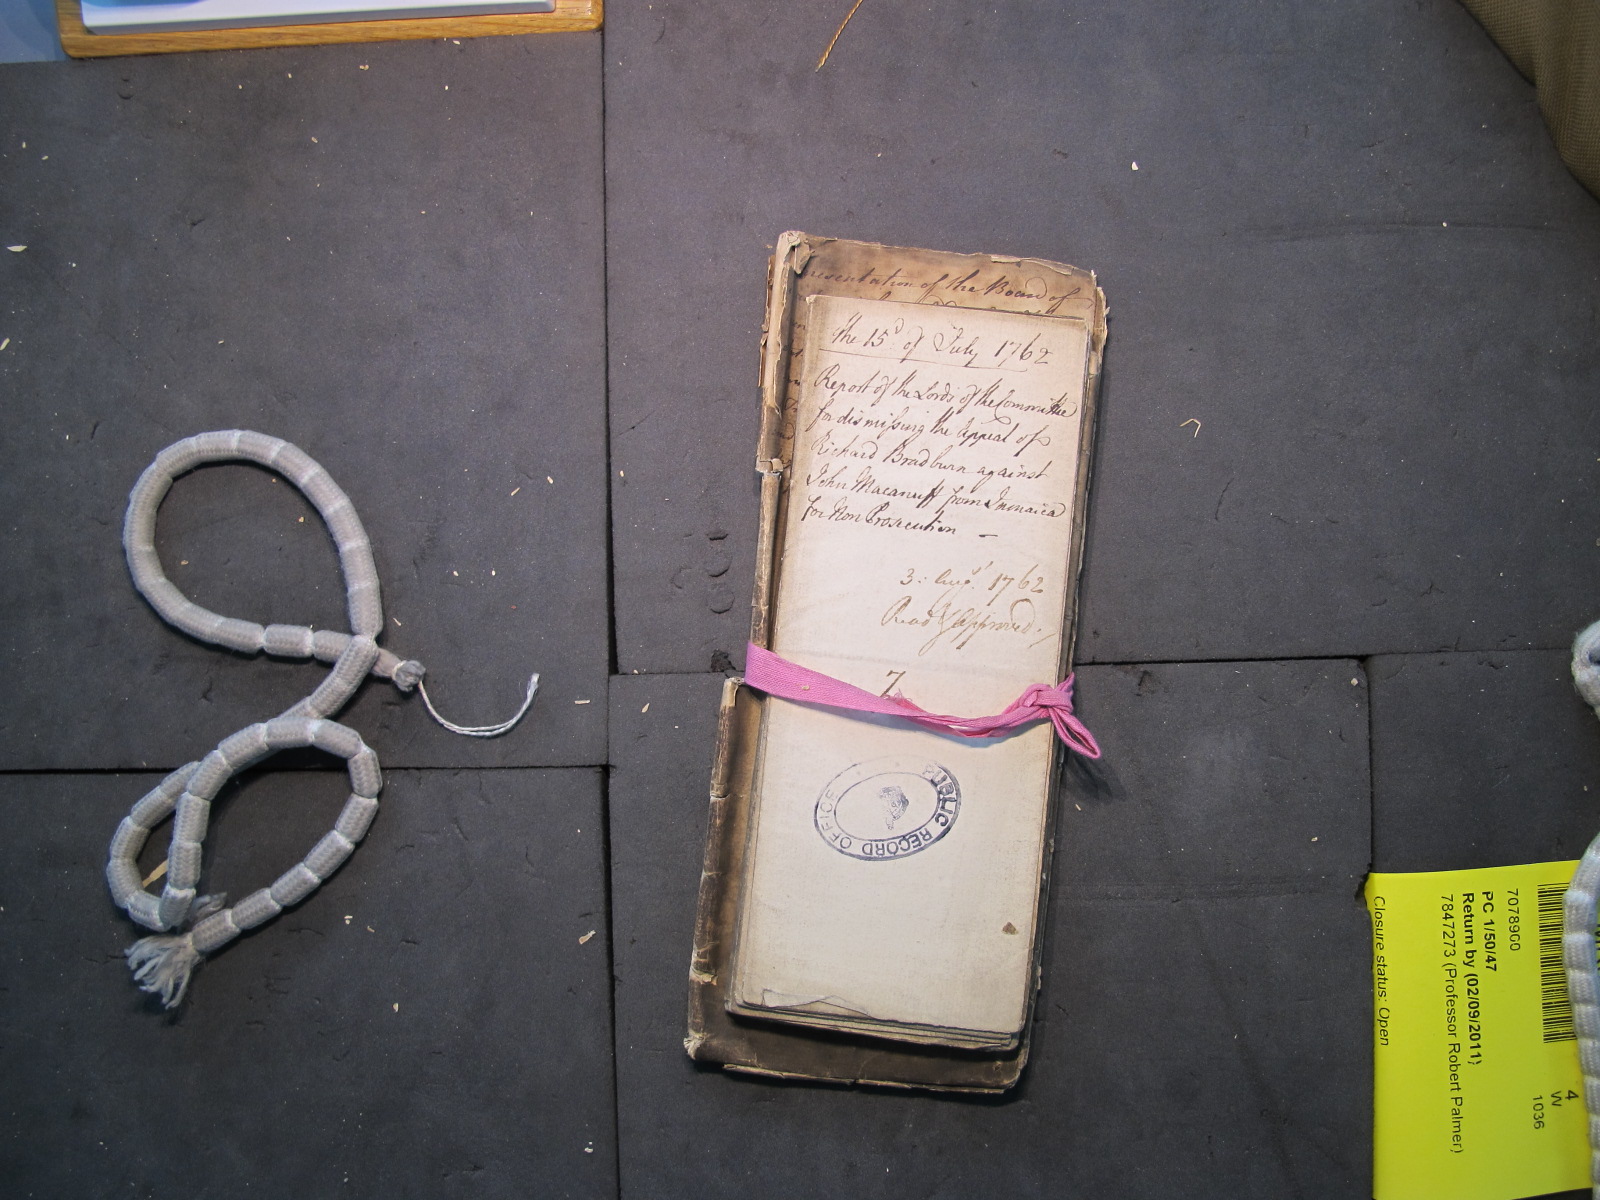 resentation of the Board of
the 15th of July 1762
Report of the Lords of the Committee
for dismissing the Appeal of
Richard Bradburn against
John Macanuff from Jamaica
for Non Prosecution —
3: Augst 1762
Read & Approved.
7
PUBLIC RECORD OFFICE
7078900
PC 1/50/47
Return by (02/09/2011)
7847273 (Professor Robert Palmer)
Closure status: Open
4
W
1036